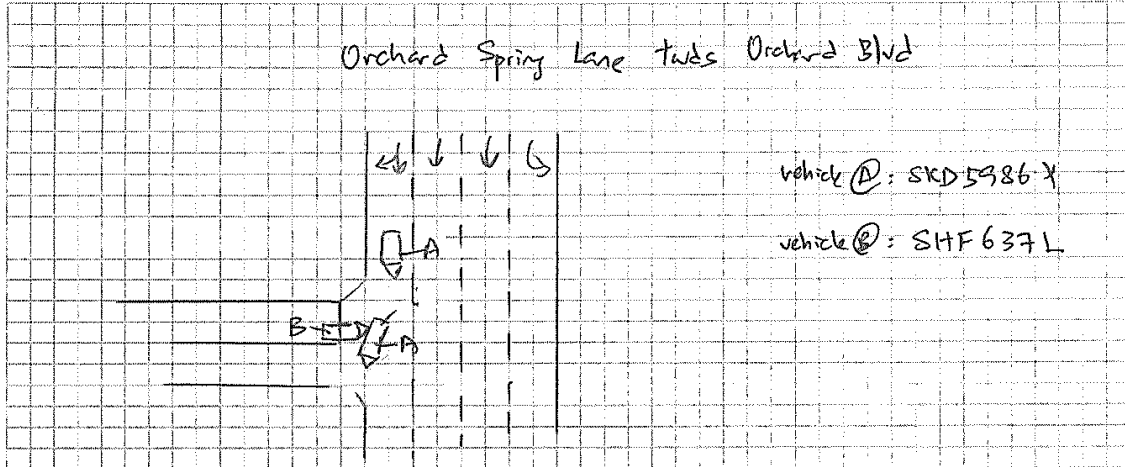 Orchard Spring Lane twds Orchard Blvd
vehicle Ⓐ: SKD5986X
vehicle Ⓑ: SHF637L
A
B
A